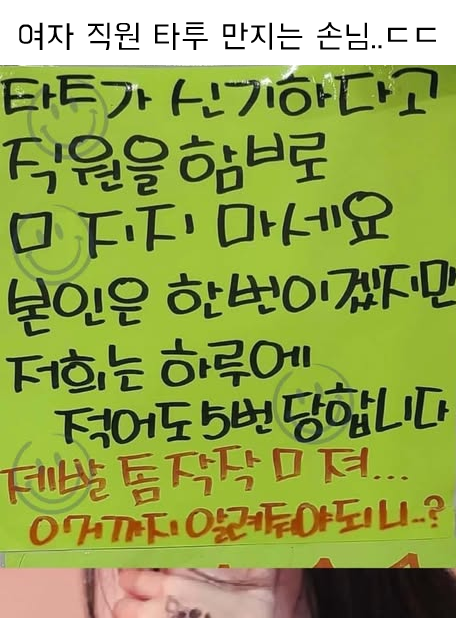 여자 직원 타투 만지는 손님..ㄷㄷ
타투가 신기하다고
직원을 함부로
ㅁ지지 마세요
본인은 한번이겠지만
저희는 하루에
적어도 5번 당합니다
제발 좀 작작 ㅁ져...
이거까지 알려줘야되니..?